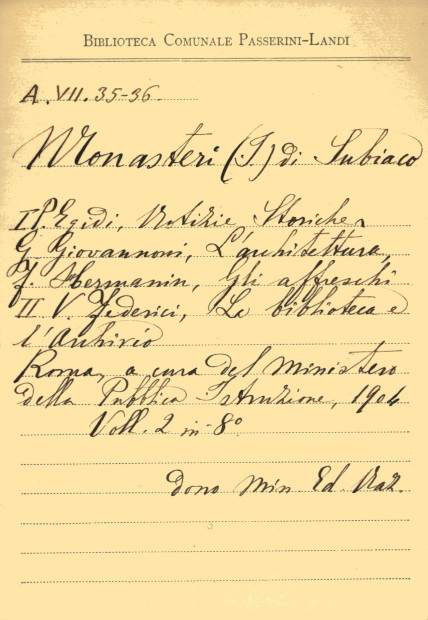 BIBLIOTECA COMUNALE PASSERINI-LANDI
A. VII. 35-36.
Monasteri (I) di Subiaco
I P. Egidi, Notizie Storiche
G. Giovannoni, L'architettura,
F. Hermanin, Gli affreschi
II V. Federici, La biblioteca e
l'Archivio
Roma, a cura del Ministero
della Pubblica Istruzione, 1904
Voll. 2 in-8º
dono Min. Ed. Naz.
3